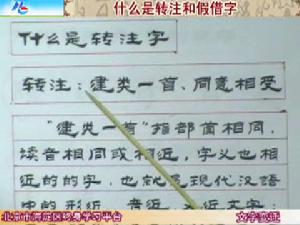 什么是转注和假借字
什么是转注字
转注：建类一首、同意相受
“建类一首”指部首相同，
读音相同或相近，字义也相
近的的字，也就是现代汉语
中的形近、音近、义近文字；
北京市海淀区终身学习平台
文字变迁